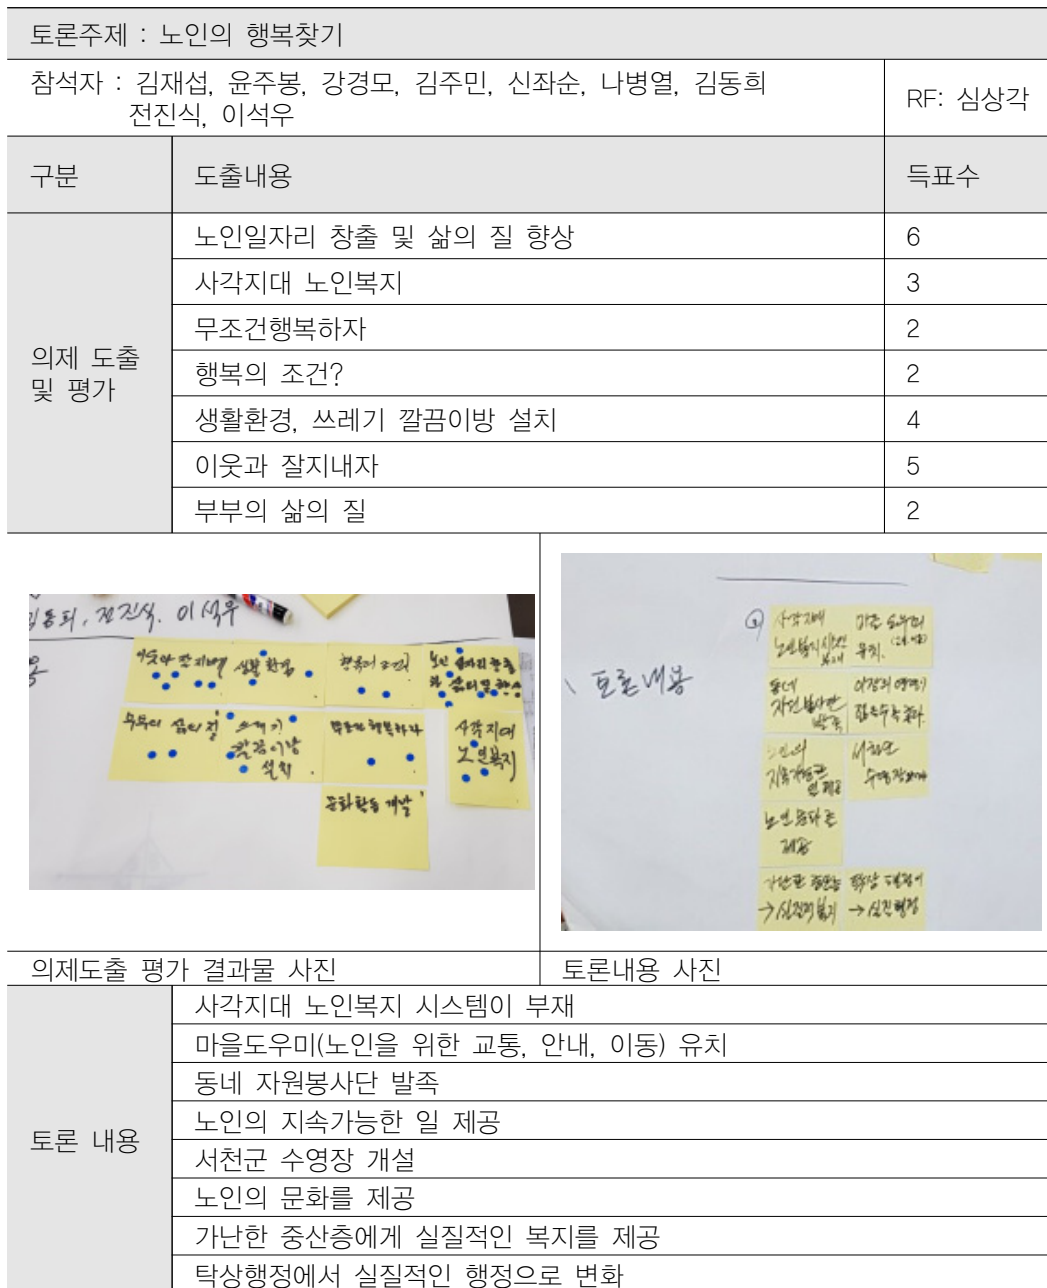 토론주제 : 노인의 행복찾기
참석자 : 김재섭, 윤주봉, 강경모, 김주민, 신좌순, 나병열, 김동희
전진식, 이석우
RF: 심상각
구분 도출내용 득표수
의제 도출
및 평가
노인일자리 창출 및 삶의 질 향상 6
사각지대 노인복지 3
무조건행복하자 2
행복의 조건? 2
생활환경, 쓰레기 깔끔이방 설치 4
이웃과 잘지내자 5
부부의 삶의 질 2
전진식. 이석우
생활환경
행복의 조건?
노인 일자리 창출
및 삶의 질 향상
부부의 삶의 질
쓰레기
깔끔이방
설치
무조건행복하자
사각지대
노인복지
문화활동 개발
토론내용
사각지대
동네
자원봉사단
발족
노인의
서천군
노인문화를
제공
의제도출 평가 결과물 사진
토론내용 사진
토론 내용
사각지대 노인복지 시스템이 부재
마을도우미(노인을 위한 교통, 안내, 이동) 유치
동네 자원봉사단 발족
노인의 지속가능한 일 제공
서천군 수영장 개설
노인의 문화를 제공
가난한 중산층에게 실질적인 복지를 제공
탁상행정에서 실질적인 행정으로 변화